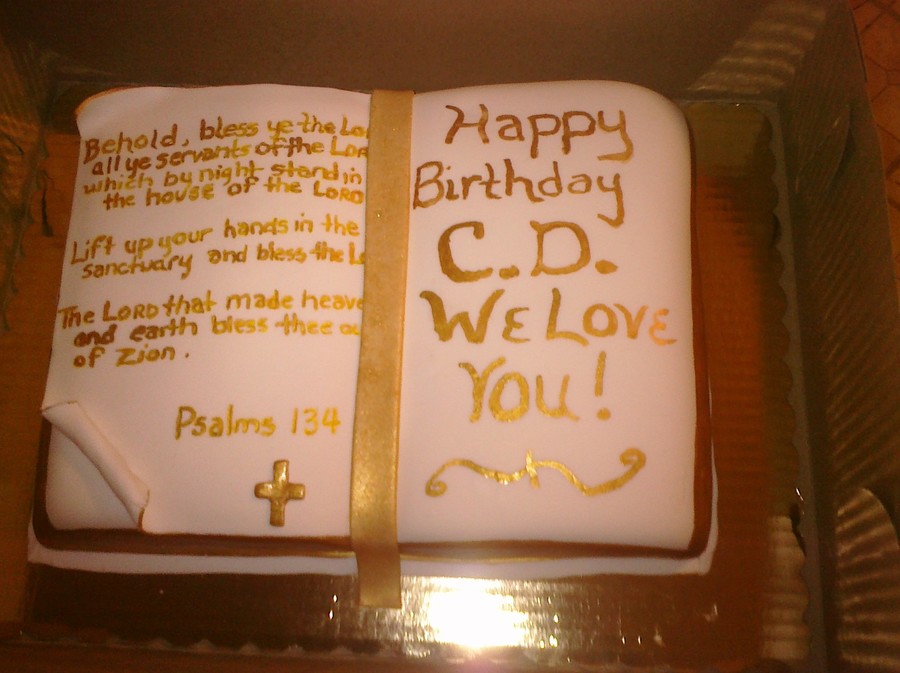 Behold, bless ye the Lo
all ye servants of the LOR
which by night stand in
the house of the LORD
Lift up your hands in the
sanctuary and bless the L
The LORD that made heave
and earth bless thee ou
of Zion.
Psalms 134
Happy
Birthday
C.D.
WE LOVE
You!